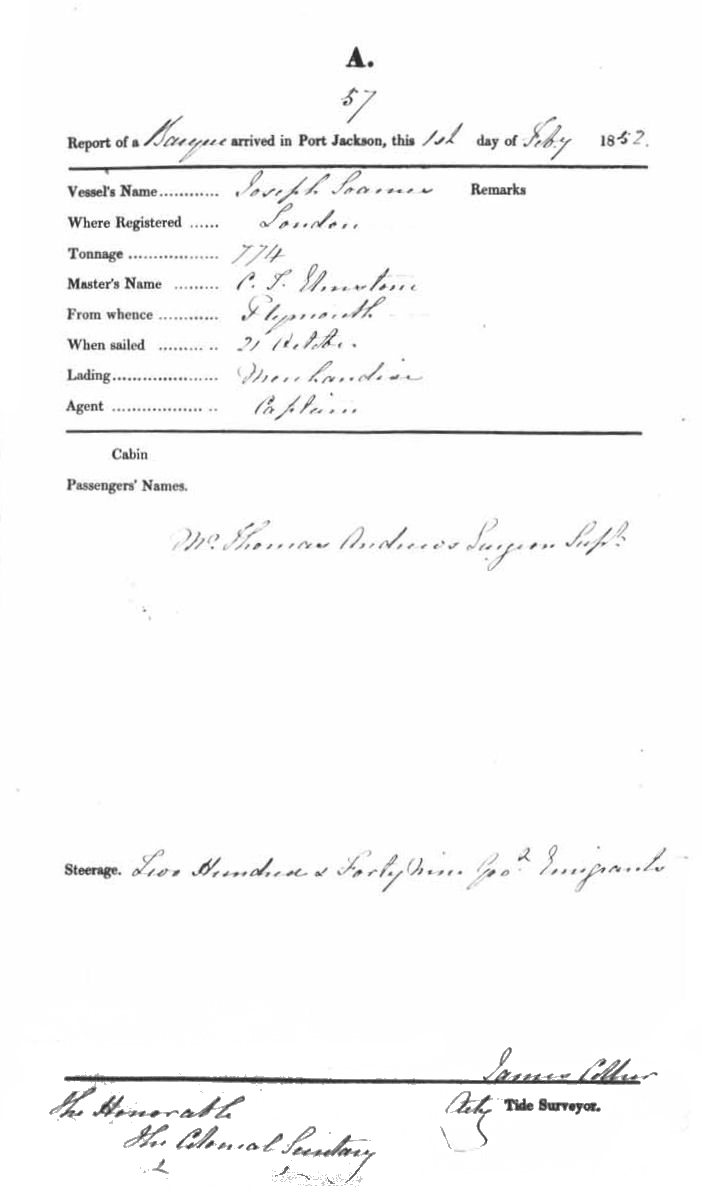 A.
57
Report of a Barque arrived in Port Jackson, this 1st day of Feby 1852.
Vessel's Name............ Joseph Soames Remarks
Where Registered ...... London
Tonnage .................. 774
Master's Name ......... C. T.
From whence ............ Plymouth
When sailed ......... .. 21 October
Lading..................... Merchandise
Agent .................. .. Captain
Cabin
Passengers' Names.
Mr. Thomas Andrews Surgeon Supt.
Steerage. Two Hundred & Forty Nine Govt. Emigrants
James
Actg Tide Surveyor.
The Honorable
The Colonial Secretary